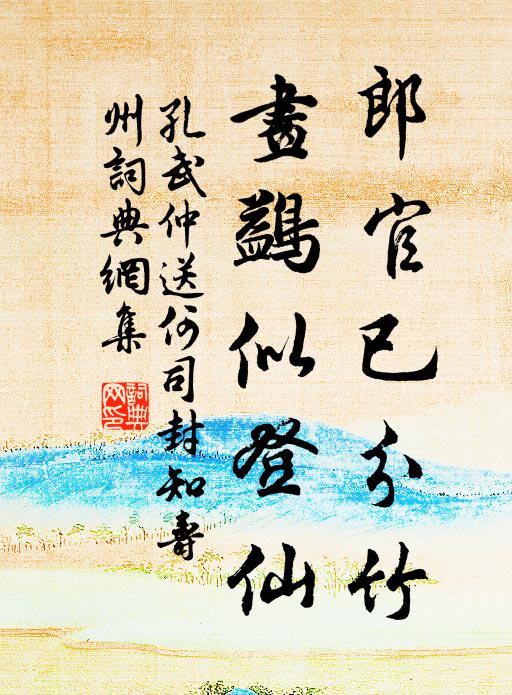 郎官已分竹
畫鷁似登仙
孔武仲送何司封知壽
州詞典網集
詞典
网印